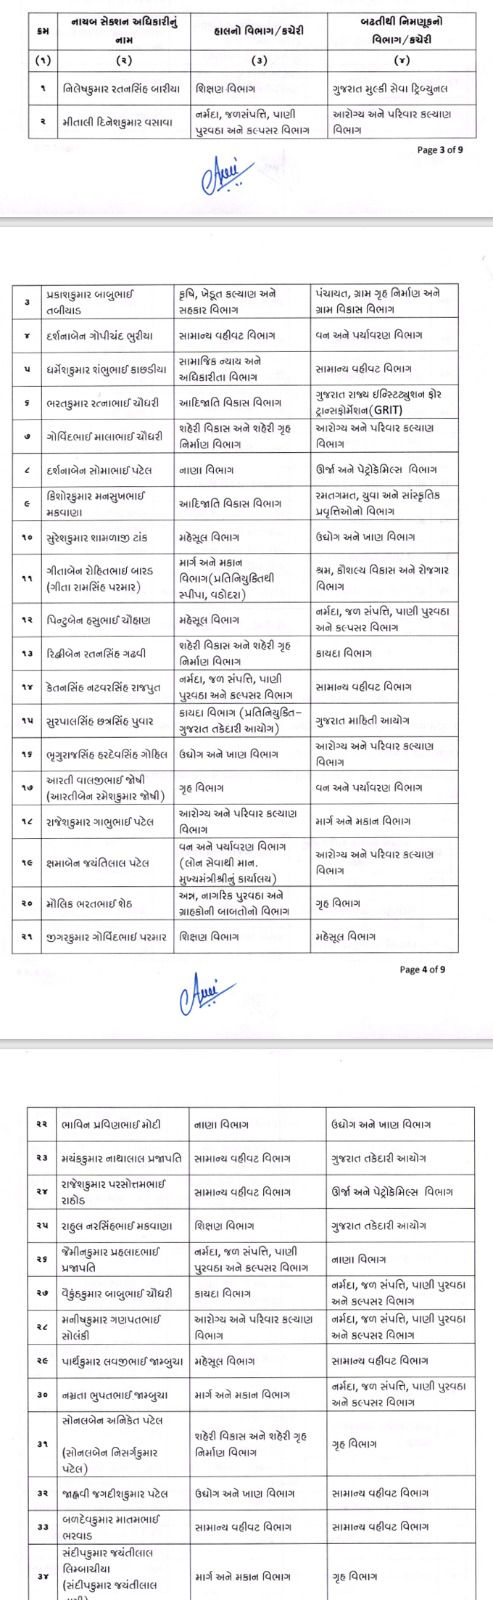 ક્રમ નાયબ સેક્શન અધિકારીનું નામ હાલનો વિભાગ/કચેરી બઢતીથી નિમણૂકનો વિભાગ/કચેરી
(૧) (૨) (૩) (૪)
૧ નિલેષકુમાર રતનસિંહ બારીયા શિક્ષણ વિભાગ ગુજરાત મુલ્કી સેવા ટ્રિબ્યુનલ
૨ મીતાલી દિનેશકુમાર વસાવા નર્મદા, જળસંપત્તિ, પાણી પુરવઠા અને કલ્પસર વિભાગ આરોગ્ય અને પરિવાર કલ્યાણ વિભાગ
Page 3 of 9
૩ પ્રકાશકુમાર બાબુભાઈ તબીયાડ કૃષિ, ખેડૂત કલ્યાણ અને સહકાર વિભાગ પંચાયત, ગ્રામ ગૃહ નિર્માણ અને ગ્રામ વિકાસ વિભાગ
૪ દર્શનાબેન ગોપીચંદ ભુરીયા સામાન્ય વહીવટ વિભાગ વન અને પર્યાવરણ વિભાગ
૫ ધર્મેશકુમાર શંભુભાઈ કાછડીયા સામાજિક ન્યાય અને અધિકારીતા વિભાગ સામાન્ય વહીવટ વિભાગ
૬ ભરતકુમાર રત્નાભાઈ ચૌધરી આદિજાતિ વિકાસ વિભાગ ગુજરાત રાજ્ય ઇન્સ્ટિટ્યુશન ફોર ટ્રાન્સફોર્મેશન(GRIT)
૭ ગોવિંદભાઈ માલાભાઈ ચૌધરી શહેરી વિકાસ અને શહેરી ગૃહ નિર્માણ વિભાગ આરોગ્ય અને પરિવાર કલ્યાણ વિભાગ
૮ દર્શનાબેન સોમાભાઈ પટેલ નાણા વિભાગ ઊર્જા અને પેટ્રોકેમિલ્સ વિભાગ
૯ કિશોરકુમાર મનસુખભાઈ મકવાણા આદિજાતિ વિકાસ વિભાગ રમતગમત, યુવા અને સાંસ્કૃતિક પ્રવૃત્તિઓનો વિભાગ
૧૦ સુરેશકુમાર શામળાજી ટાંક મહેસૂલ વિભાગ ઉદ્યોગ અને ખાણ વિભાગ
૧૧ ગીતાબેન રોહિતભાઇ બારડ (ગીતા રામસિંહ પરમાર) માર્ગ અને મકાન વિભાગ(પ્રતિનિયુક્તિથી સ્પીપા, વડોદરા) શ્રમ, કૌશલ્ય વિકાસ અને રોજગાર વિભાગ
૧૨ પિન્ટુબેન હસુભાઈ ચૌહાણ મહેસૂલ વિભાગ નર્મદા, જળ સંપત્તિ, પાણી પુરવઠા અને કલ્પસર વિભાગ
૧૩ રિદ્ધીબેન રતનસિંહ ગઢવી શહેરી વિકાસ અને શહેરી ગૃહ નિર્માણ વિભાગ કાયદા વિભાગ
૧૪ કેતનસિંહ નટવરસિંહ રાજપુત નર્મદા, જળ સંપત્તિ, પાણી પુરવઠા અને કલ્પસર વિભાગ સામાન્ય વહીવટ વિભાગ
૧૫ સુરપાલસિંહ છત્રસિંહ પુવાર કાયદા વિભાગ (પ્રતિનિયુક્તિ- ગુજરાત તકેદારી આયોગ) ગુજરાત માહિતી આયોગ
૧૬ ભૃગુરાજસિંહ હરદેવસિંહ ગોહિલ ઉદ્યોગ અને ખાણ વિભાગ આરોગ્ય અને પરિવાર કલ્યાણ વિભાગ
૧૭ આરતી વાલજીભાઈ જોષી (આરતીબેન રમેશકુમાર જોષી) ગૃહ વિભાગ વન અને પર્યાવરણ વિભાગ
૧૮ રાજેશકુમાર ગાભુભાઈ પટેલ આરોગ્ય અને પરિવાર કલ્યાણ વિભાગ માર્ગ અને મકાન વિભાગ
૧૯ ક્ષમાબેન જયંતિલાલ પટેલ વન અને પર્યાવરણ વિભાગ (લોન સેવાથી માન. મુખ્યમંત્રીશ્રીનું કાર્યાલય) આરોગ્ય અને પરિવાર કલ્યાણ વિભાગ
૨૦ મૌલિક ભરતભાઈ શેઠ અન્ન, નાગરિક પુરવઠા અને ગ્રાહકોની બાબતોનો વિભાગ ગૃહ વિભાગ
૨૧ જીગરકુમાર ગોવિંદભાઈ પરમાર શિક્ષણ વિભાગ મહેસૂલ વિભાગ
Page 4 of 9
૨૨ ભાવિન પ્રવિણભાઈ મોદી નાણા વિભાગ ઉદ્યોગ અને ખાણ વિભાગ
૨૩ મયંકકુમાર નાથાલાલ પ્રજાપતિ સામાન્ય વહીવટ વિભાગ ગુજરાત તકેદારી આયોગ
૨૪ રાજેશકુમાર પરસોત્તમભાઈ રાઠોડ સામાન્ય વહીવટ વિભાગ ઊર્જા અને પેટ્રોકેમિલ્સ વિભાગ
૨૫ રાહુલ નરસિંહભાઈ મકવાણા શિક્ષણ વિભાગ ગુજરાત તકેદારી આયોગ
૨૬ જૈમીનકુમાર પ્રહલાદભાઈ પ્રજાપતિ નર્મદા, જળ સંપત્તિ, પાણી પુરવઠા અને કલ્પસર વિભાગ નાણા વિભાગ
૨૭ વૈકુંઠકુમાર બાબુભાઈ ચૌધરી કાયદા વિભાગ નર્મદા, જળ સંપત્તિ, પાણી પુરવઠા અને કલ્પસર વિભાગ
૨૮ મનીષકુમાર ગણપતભાઈ સોલંકી આરોગ્ય અને પરિવાર કલ્યાણ વિભાગ નર્મદા, જળ સંપત્તિ, પાણી પુરવઠા અને કલ્પસર વિભાગ
૨૯ પાર્થકુમાર લવજીભાઈ જામ્બુચા મહેસૂલ વિભાગ સામાન્ય વહીવટ વિભાગ
૩૦ નમ્રતા ભુપતભાઈ જામ્બુચા માર્ગ અને મકાન વિભાગ નર્મદા, જળ સંપત્તિ, પાણી પુરવઠા અને કલ્પસર વિભાગ
૩૧ સોનલબેન અનિકેત પટેલ (સોનલબેન નિસર્ગકુમાર પટેલ) શહેરી વિકાસ અને શહેરી ગૃહ નિર્માણ વિભાગ ગૃહ વિભાગ
૩૨ જાહ્નવી જગદીશકુમાર પટેલ ઉદ્યોગ અને ખાણ વિભાગ સામાન્ય વહીવટ વિભાગ
૩૩ બળદેવકુમાર માતમભાઈ ભરવાડ સામાન્ય વહીવટ વિભાગ સામાન્ય વહીવટ વિભાગ
૩૪ સંદીપકુમાર જયંતીલાલ લિમ્બાચીયા (સંદીપકુમાર જયંતીલાલ માર્ગ અને મકાન વિભાગ ગૃહ વિભાગ